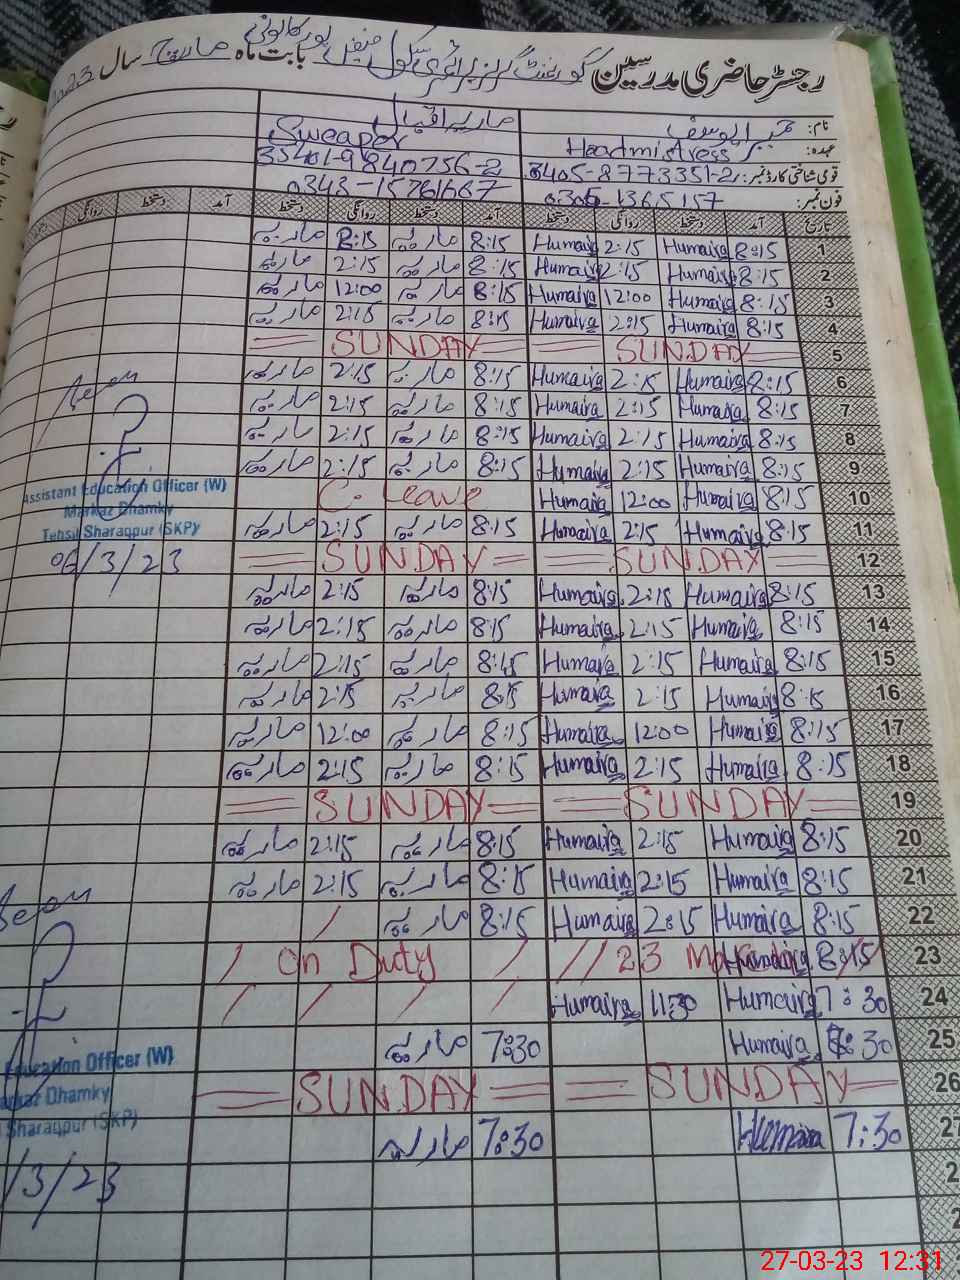 رجسٹر حاضری مدرسین گورنمنٹ گرلز پرائمری سکول بابت ماہ مارچ سال 2023
نام: حمیرا یوسف ماریہ اقبال
عہدہ: Headmistress Sweaper
قومی شناختی کارڈ نمبر: 3405-8773351-2 35401-9840756-2
فون نمبر: 0305-1365157 0343-15761667
تاریخ آمد دستخط روانگی دستخط آمد دستخط روانگی دستخط آمد دستخط روانگی
1 8:15 Humaira 2:15 Humaira 8:15 ماریہ 8:15 ماریہ
2 8:15 Humaira 2:15 Humaira 8:15 ماریہ 2:15 ماریہ
3 8:15 Humaira 12:00 Humaira 8:15 ماریہ 12:00 ماریہ
4 8:15 Humaira 2:15 Humaira 8:15 ماریہ 2:15 ماریہ
5 SUNDAY SUNDAY
6 8:15 Humaira 2:15 Humaira 8:15 ماریہ 2:15 ماریہ
7 8:15 Humaira 2:15 Humaira 8:15 ماریہ 2:15 ماریہ
8 8:15 Humaira 2:15 Humaira 8:15 ماریہ 2:15 ماریہ
9 8:15 Humaira 2:15 Humaira 8:15 ماریہ 2:15 ماریہ
10 8:15 Humaira 12:00 Humaira C. Leave
11 8:15 Humaira 2:15 Humaira 8:15 ماریہ 2:15 ماریہ
12 SUNDAY SUNDAY
13 8:15 Humaira 2:15 Humaira 8:15 ماریہ 2:15 ماریہ
14 8:15 Humaira 2:15 Humaira 8:15 ماریہ 2:15 ماریہ
15 8:15 Humaira 2:15 Humaira 8:15 ماریہ 2:15 ماریہ
16 8:15 Humaira 2:15 Humaira 8:15 ماریہ 2:15 ماریہ
17 8:15 Humaira 12:00 Humaira 8:15 ماریہ 12:00 ماریہ
18 8:15 Humaira 2:15 Humaira 8:15 ماریہ 2:15 ماریہ
19 SUNDAY SUNDAY
20 8:15 Humaira 2:15 Humaira 8:15 ماریہ 2:15 ماریہ
21 8:15 Humaira 2:15 Humaira 8:15 ماریہ 2:15 ماریہ
22 8:15 Humaira 2:15 Humaira 8:15 ماریہ /
23 8:15 Humaira 23 // / On Duty /
24 7:30 Humaira 11:30 Humaira / / / /
25 7:30 Humaira 7:30 ماریہ
26 SUNDAY SUNDAY
27 7:30 Humaira 7:30 ماریہ
Seen
Assistant Education Officer (W)
Markaz Dhamky
Tehsil Sharaqpur (SKP)
06/3/23
Seen
Education Officer (W)
Dhamky
Sharaqpur (SKP)
/3/23
27-03-23 12:31